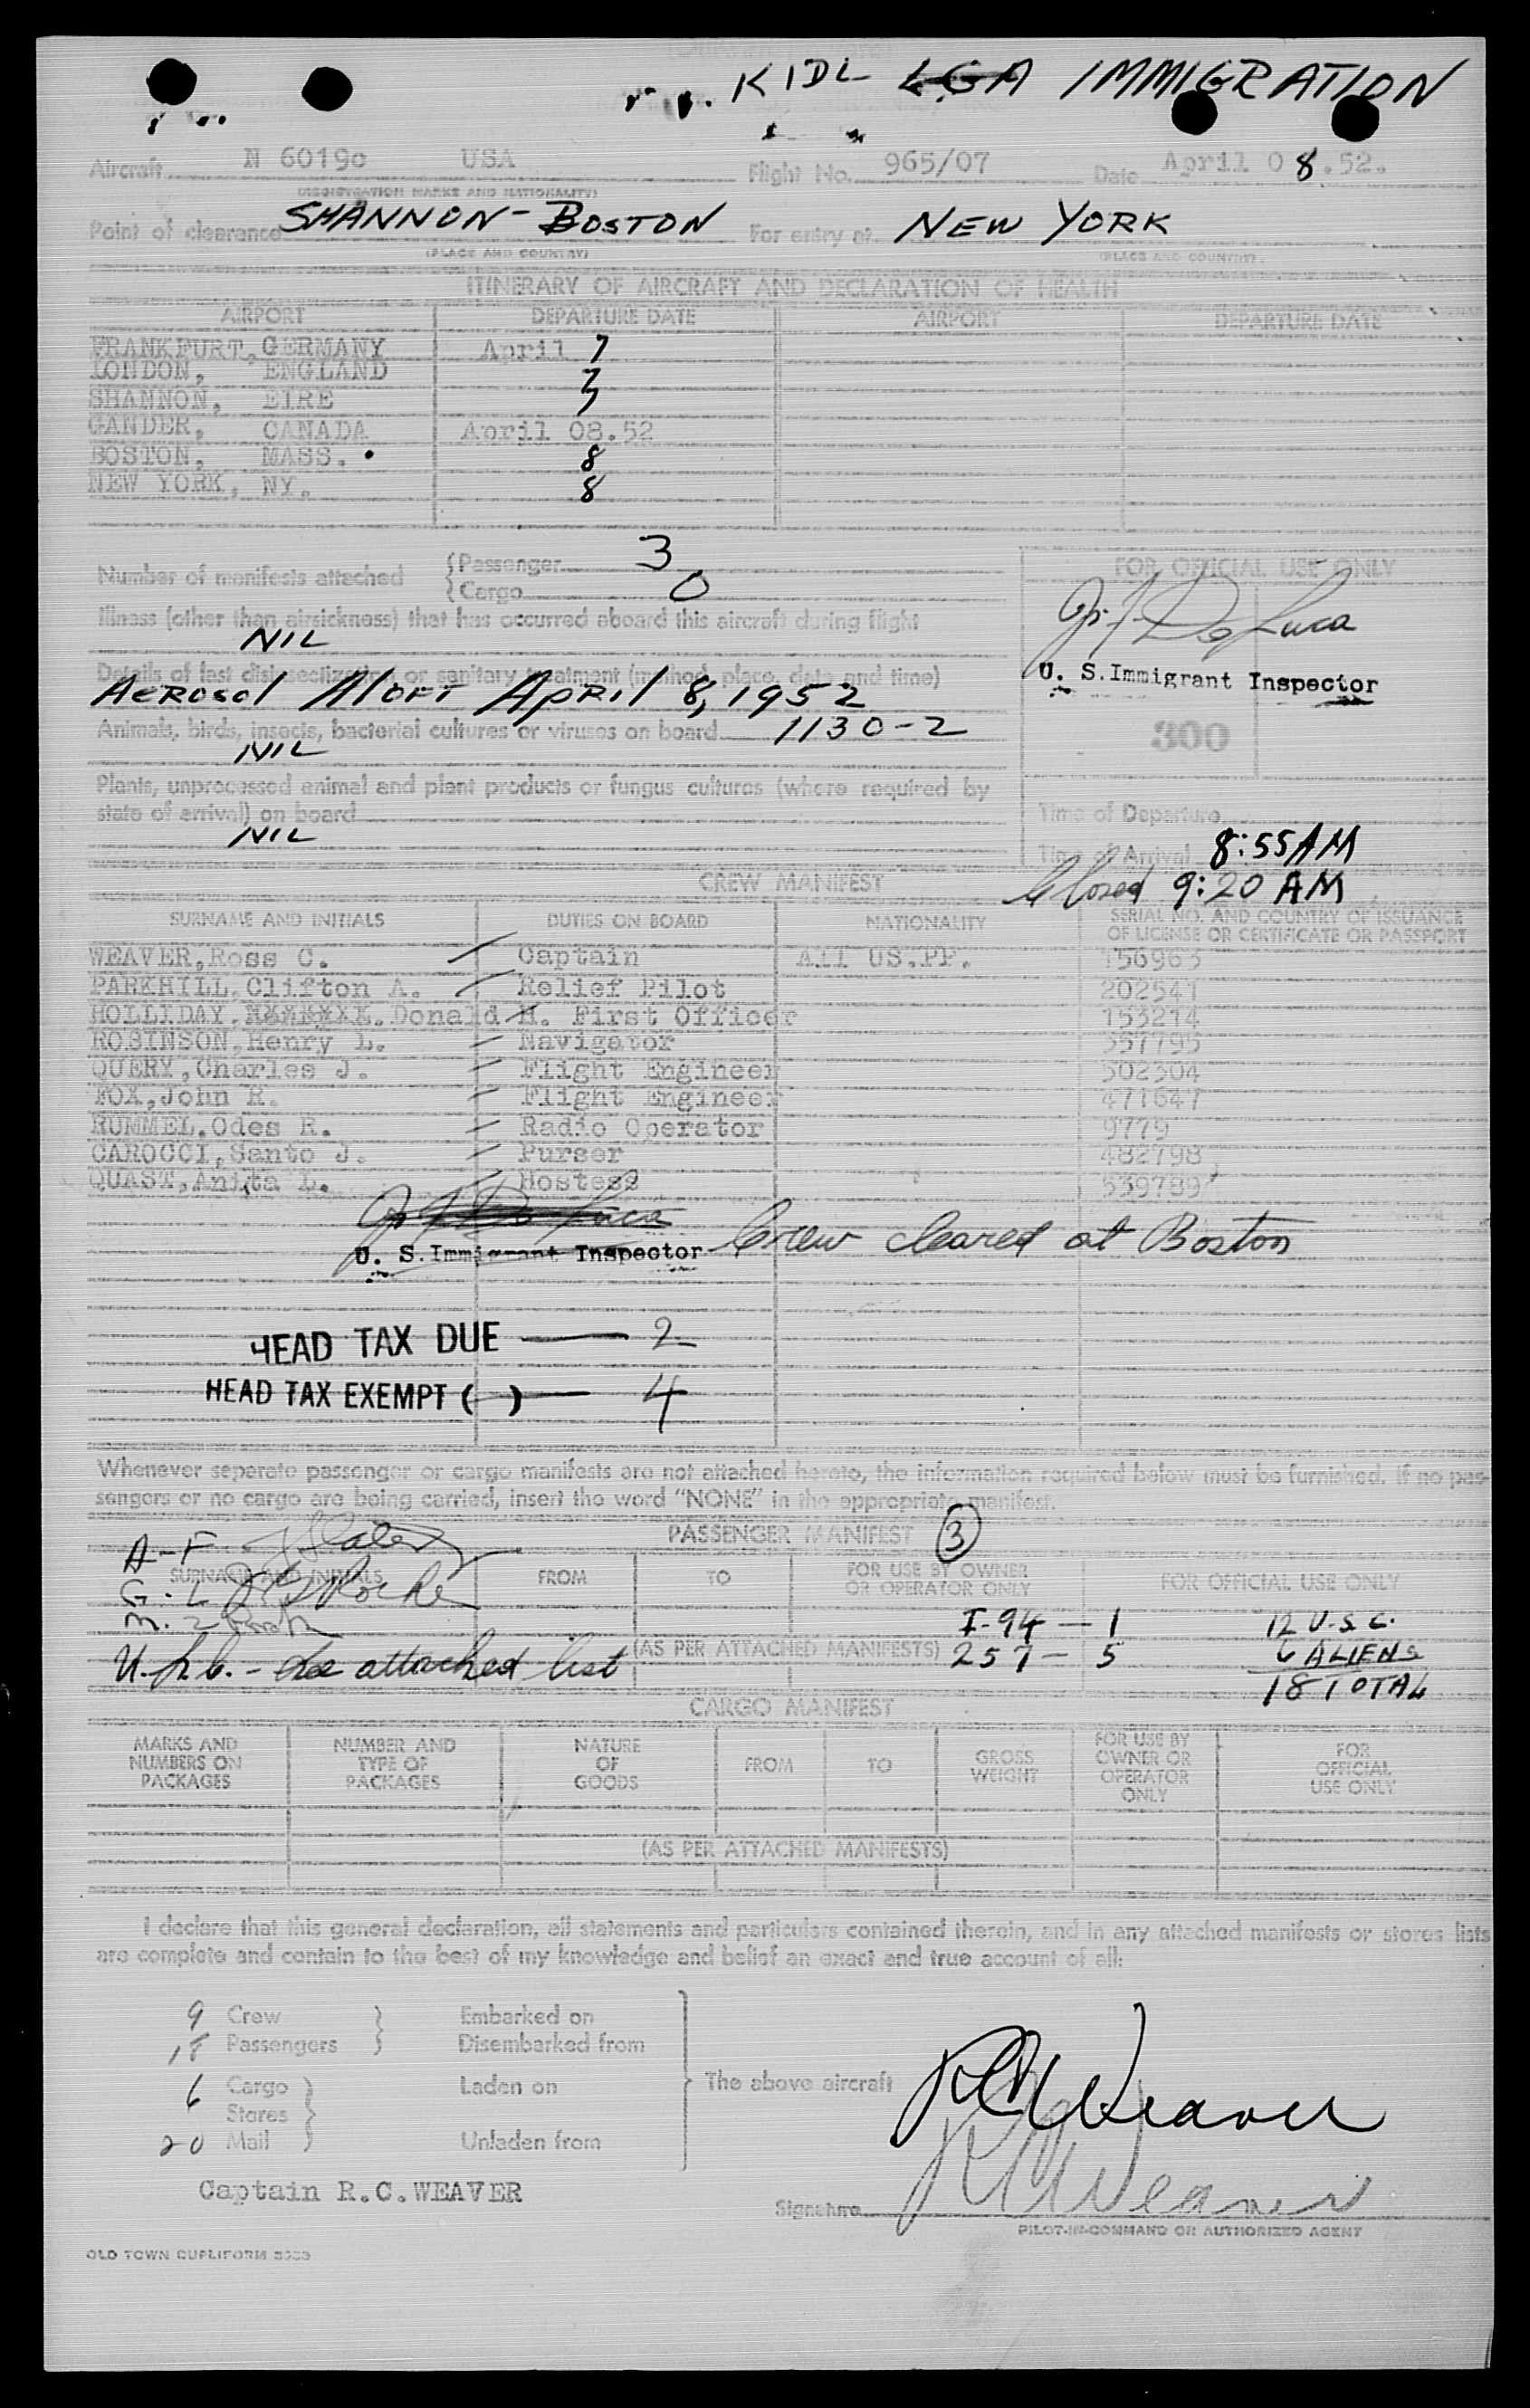 KIDL LGA IMMIGRATION
Aircraft N 6019c USA Flight No. 965/07 Date April 08.52.
(REGISTRATION MARKS AND NATIONALITY)
Point of clearance SHANNON-BOSTON For entry at NEW YORK
(PLACE AND COUNTRY) (PLACE AND COUNTRY)
ITINERARY OF AIRCRAFT AND DECLARATION OF HEALTH
AIRPORT DEPARTURE DATE AIRPORT DEPARTURE DATE
FRANKFURT, GERMANY April 7
LONDON, ENGLAND 7
SHANNON, EIRE 7
GANDER, CANADA April 08.52
BOSTON, MASS. 8
NEW YORK, NY. 8
Number of manifests attached {Passenger 3
{Cargo 0
FOR OFFICIAL USE ONLY
Illness (other than airsickness) that has occurred aboard this aircraft during flight
NIL
U. S. Immigrant Inspector
Details of last disinsectization or sanitary treatment (method, place, date and time)
AEROSOL ALOFT APRIL 8, 1952
Animals, birds, insects, bacterial cultures or viruses on board 1130-2
NIL
300
Plants, unprocessed animal and plant products or fungus cultures (where required by
state of arrival) on board
NIL
Time of Departure
Time of Arrival 8:55AM
Closed 9:20 AM
CREW MANIFEST
SURNAME AND INITIALS DUTIES ON BOARD NATIONALITY SERIAL NO. AND COUNTRY OF ISSUANCE
OF LICENSE OR CERTIFICATE OR PASSPORT
WEAVER,Ross C. Captain All US.PP. 156963
PARKHILL,Clifton A. Relief Pilot 202541
HOLLIDAY, Donald H. First Officer 153214
ROBINSON,Henry L. Navigator 357795
QUERY,Charles J. Flight Engineer 502304
FOX,John R. Flight Engineer 471647
RUMMEL,Odes R. Radio Operator 9779
CAROCCI,Santo J. Purser 482798
QUAST,Anita L. Hostess 539789
U. S. Immigrant Inspector Crew cleared at Boston
HEAD TAX DUE — 2
HEAD TAX EXEMPT ( ) — 4
Whenever separate passenger or cargo manifests are not attached hereto, the information required below must be furnished. If no pas-
sengers or no cargo are being carried, insert the word "NONE" in the appropriate manifest.
PASSENGER MANIFEST 3
A-F
SURNAME AND INITIALS FROM TO FOR USE BY OWNER
OR OPERATOR ONLY FOR OFFICIAL USE ONLY
G-L
I-94 — 1 12 U.S.C.
U.S.C. - See attached list (AS PER ATTACHED MANIFESTS) 257 — 5 6 ALIENS
18 TOTAL
CARGO MANIFEST
MARKS AND
NUMBERS ON
PACKAGES
NUMBER AND
TYPE OF
PACKAGES
NATURE
OF
GOODS
FROM TO
GROSS
WEIGHT
FOR USE BY
OWNER OR
OPERATOR
ONLY
FOR
OFFICIAL
USE ONLY
(AS PER ATTACHED MANIFESTS)
I declare that this general declaration, all statements and particulars contained therein, and in any attached manifests or stores lists
are complete and contain to the best of my knowledge and belief an exact and true account of all:
9 Crew Embarked on
18 Passengers Disembarked from
6 Cargo Laden on The above aircraft
Stores
20 Mail Unladen from
RCWeaver
Captain R.C.WEAVER
Signature RCWeaver
PILOT-IN-COMMAND OR AUTHORIZED AGENT
OLD TOWN DUPLIFORM